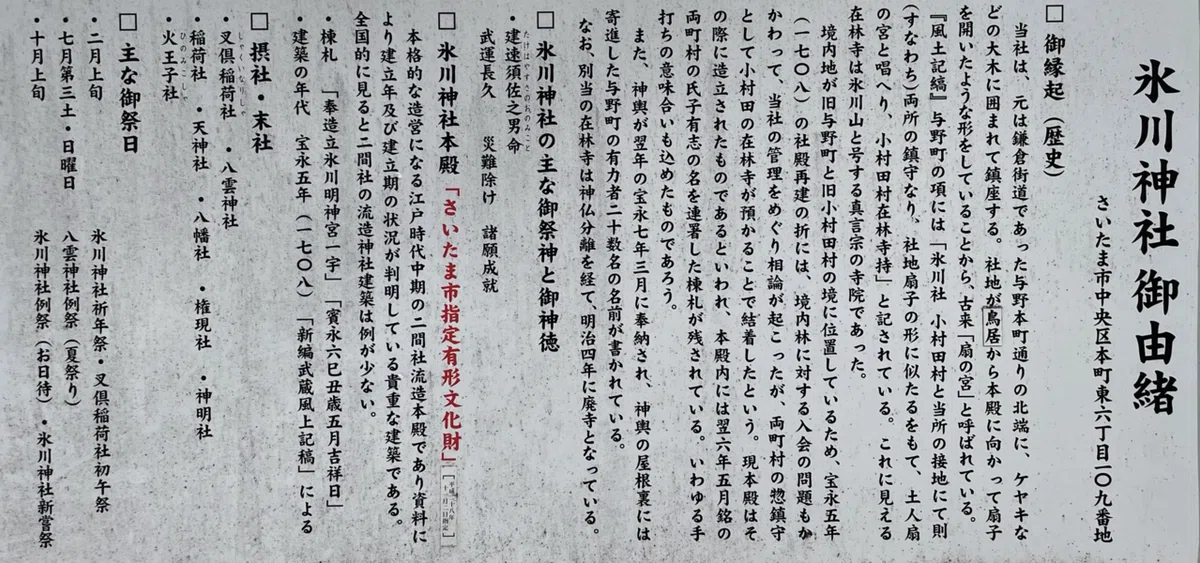 氷川神社 御由緒
さいたま市中央区本町東六丁目一〇九番地
□ 御縁起（歴史）
当社は、元は鎌倉街道であった与野本町通りの北端に、ケヤキな
どの大木に囲まれて鎮座する。社地が鳥居から本殿に向かって扇子
を開いたような形をしていることから、古来「扇の宮」と呼ばれている。
『風土記稿』与野町の項には「氷川社 小村田村と当所の接地にて則
(すなわち)両所の鎮守なり、社地扇子の形に似たるをもて、土人扇
の宮と唱へり、小村田村在林寺持」と記されている。これに見える
在林寺は氷川山と号する真言宗の寺院であった。
境内地が旧与野町と旧小村田村の境に位置しているため、宝永五年
（一七〇八）の社殿再建の折には、境内林に対する入会の問題もか
かわって、当社の管理をめぐり相論が起こったが、両町村の惣鎮守
として小村田の在林寺が預かることで結着したという。現本殿はそ
の際に造立されたものであるといわれ、本殿内には翌六年五月銘の
両町村の氏子有志の名を連署した棟札が残されている。いわゆる手
打ちの意味合いも込めたものであろう。
また、神輿が翌年の宝永七年三月に奉納され、神輿の屋根裏には
寄進した与野町の有力者二十数名の名前が書かれている。
なお、別当の在林寺は神仏分離を経て、明治四年に廃寺となっている。
□ 氷川神社の主な御祭神と御神徳
・建速須佐之男命 たけはやすさのおのみこと
武運長久 災難除け 諸願成就
□ 氷川神社本殿「さいたま市指定有形文化財」［平成二十八年 十一月一日指定］
本格的な造営になる江戸時代中期の二間社流造本殿であり資料に
より建立年及び建立期の状況が判明している貴重な建築である。
全国的に見ると二間社の流造神社建築は例が少ない。
・棟札 「奉造立氷川明神宮一宇」「寳永六己丑歳五月吉祥日」
・建築の年代 宝永五年（一七〇八）「新編武蔵風土記稿」による
□ 摂社・末社
・叉倶稲荷社 しゃくいなりしゃ ・八雲神社
・稲荷社 ・天神社 ・八幡社 ・権現社 ・神明社
・火王子社 ひのみこしゃ
□ 主な御祭日
・二月上旬 氷川神社祈年祭・叉倶稲荷社初午祭
・七月第三土・日曜日 八雲神社例祭（夏祭り）
・十月上旬 氷川神社例祭（お日待）・氷川神社新嘗祭